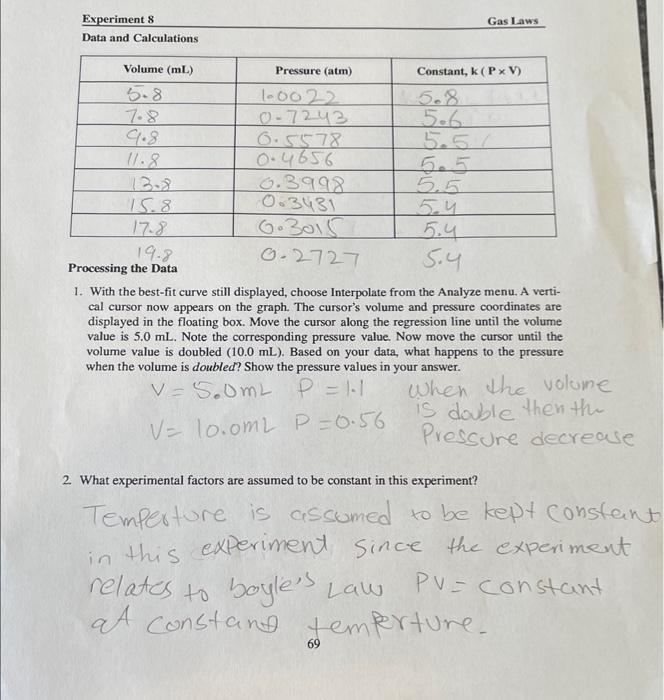 Experiment 8 Gas Laws
Data and Calculations
Volume (mL) Pressure (atm) Constant, k ( P × V)
5.8 1.0022 5.8
7.8 0.7243 5.6
9.8 0.5578 5.5
11.8 0.4656 5.5
13.8 0.3998 5.5
15.8 0.3431 5.4
17.8 0.3015 5.4
19.8 0.2727 5.4
Processing the Data
1. With the best-fit curve still displayed, choose Interpolate from the Analyze menu. A verti-
cal cursor now appears on the graph. The cursor's volume and pressure coordinates are
displayed in the floating box. Move the cursor along the regression line until the volume
value is 5.0 mL. Note the corresponding pressure value. Now move the cursor until the
volume value is doubled (10.0 mL). Based on your data, what happens to the pressure
when the volume is doubled? Show the pressure values in your answer.
V = 5.0mL P = 1.1 when the volume
is double then the
V= 10.0mL P=0.56
Pressure decrease
2. What experimental factors are assumed to be constant in this experiment?
Temperture is assumed to be kept constant
in this experiment since the experiment
relates to boyle's Law PV= constant
at constant temperture.
69